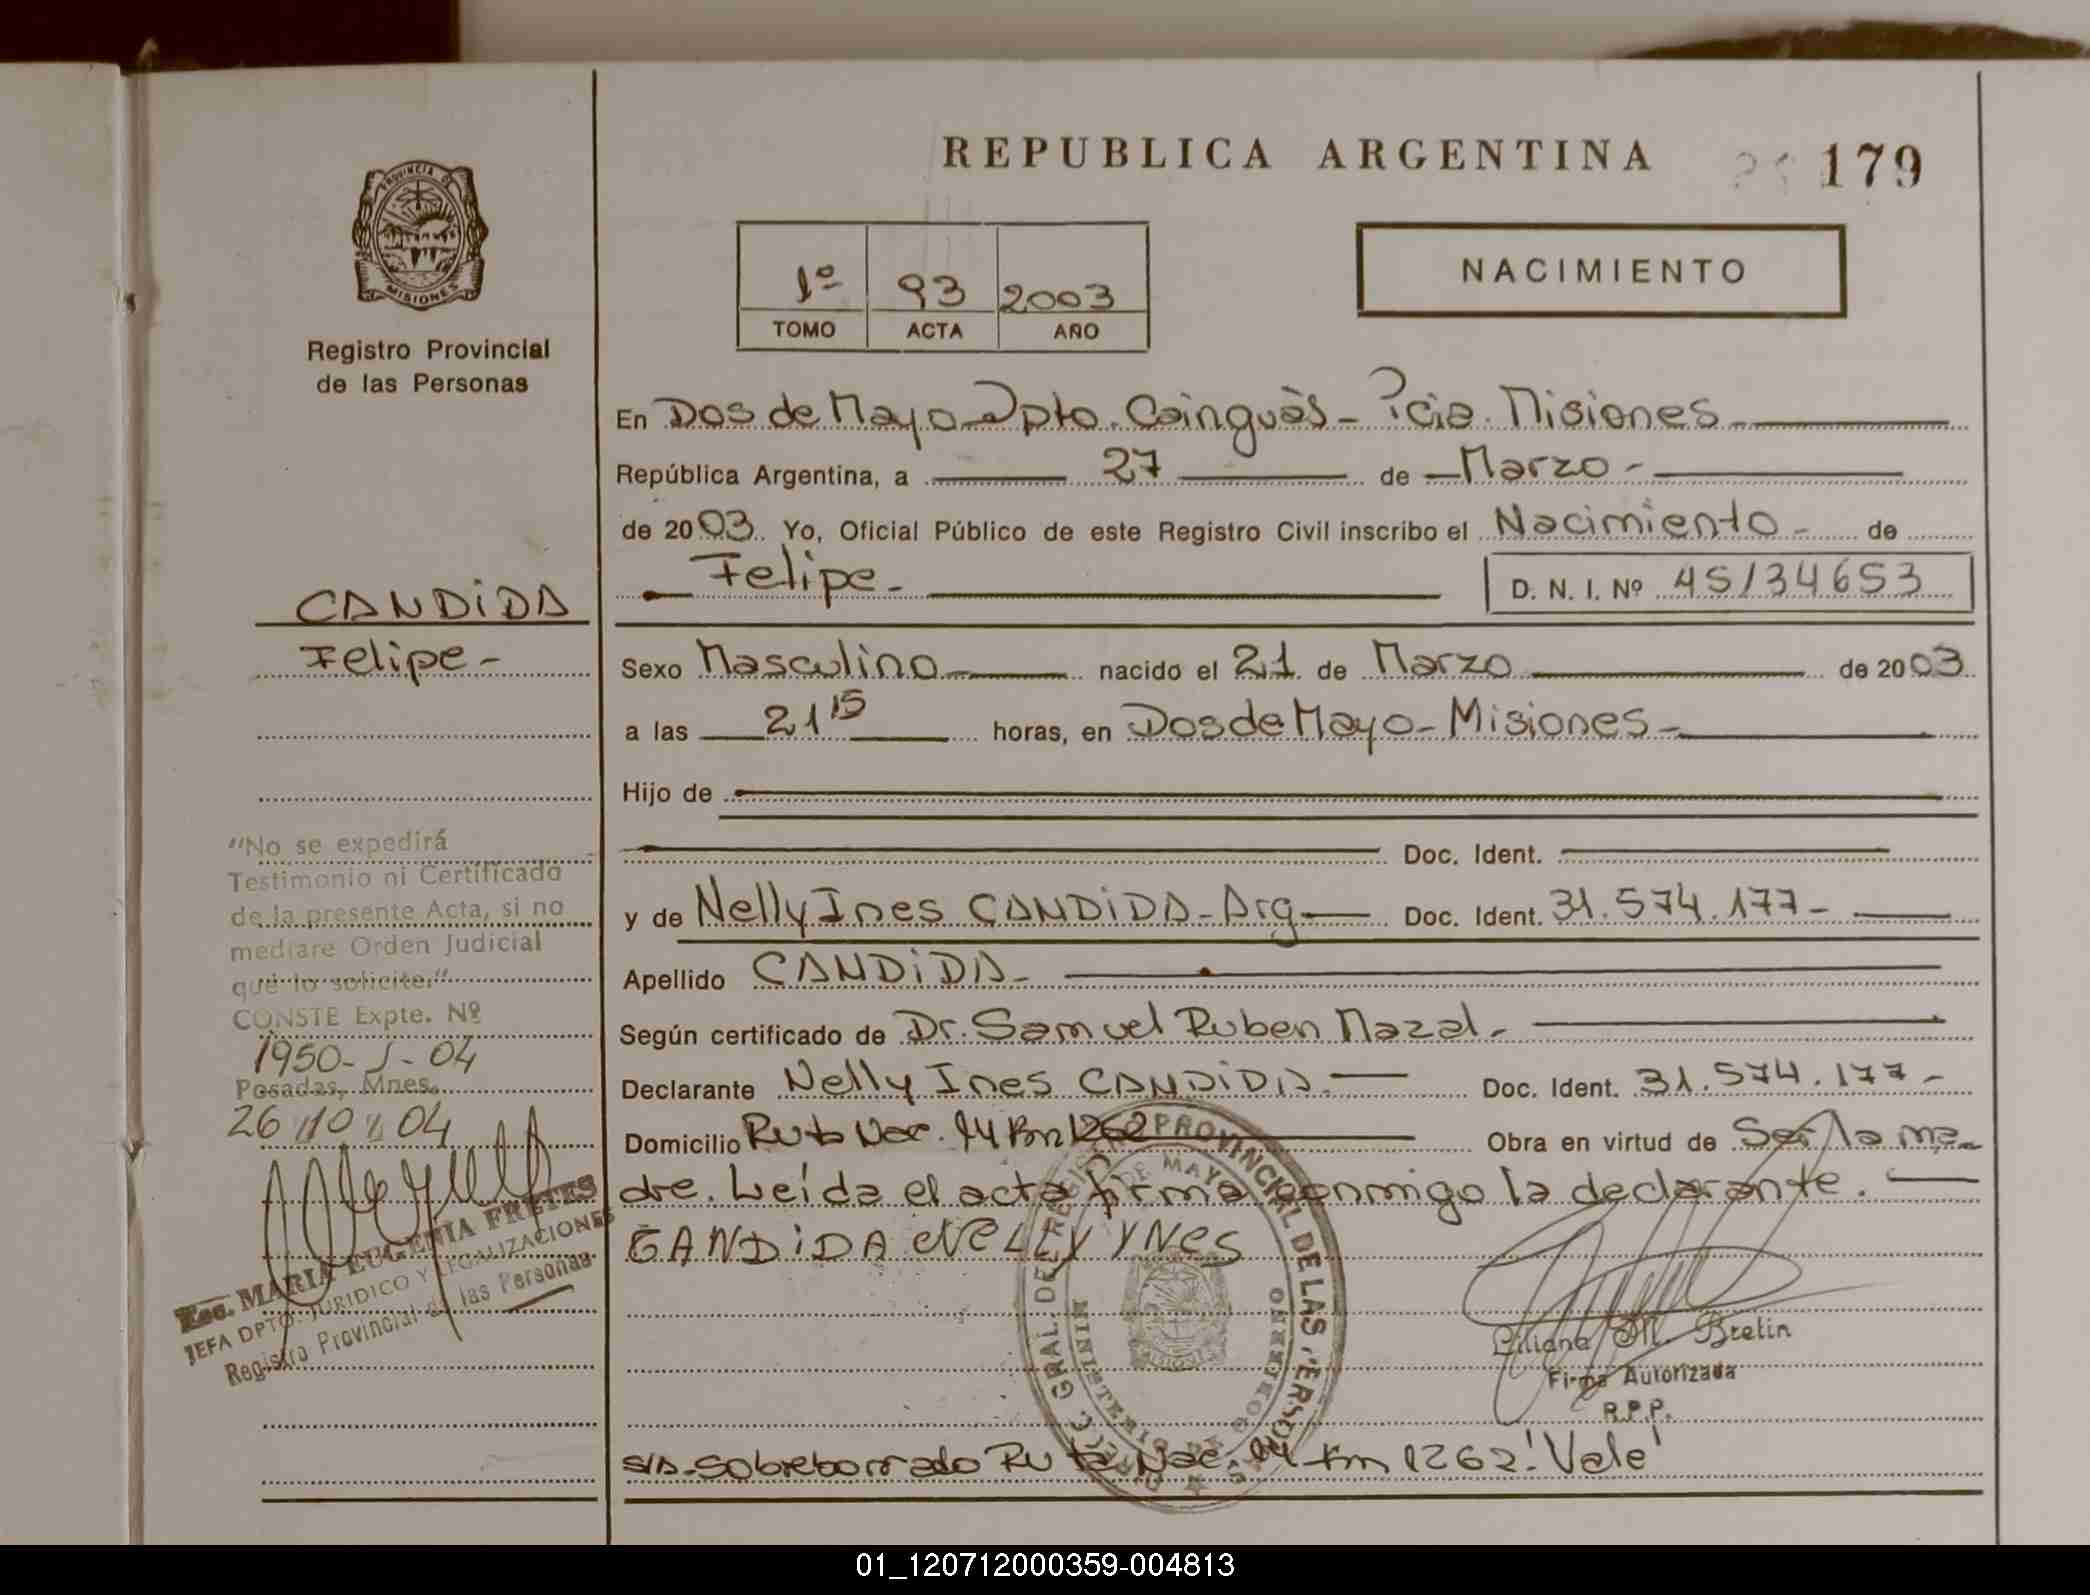 REPUBLICA ARGENTINA 179
PROVINCIA DE
MISIONES
Registro Provincial
de las Personas
1º 93 2003
TOMO ACTA AÑO
NACIMIENTO
En Dos de Mayo Dpto. Cainguàs - Pcia. Misiones
República Argentina, a 27 de Marzo -
de 2003. Yo, Oficial Público de este Registro Civil inscribo el Nacimiento - de
Felipe - D. N. I. Nº 45134653
CANDiDA
Felipe -
Sexo Masculino nacido el 21 de Marzo de 2003
a las 21 15 horas, en Dos de Mayo - Misiones -
Hijo de
Doc. Ident.
y de Nelly Ines CANDiDA - Arg Doc. Ident. 31.574.177 -
Apellido CANDiDA -
Según certificado de Dr. Samuel Ruben Mazal -
Declarante Nelly Ines CANDiDA - Doc. Ident. 31.574.177 -
Domicilio Ruta Nac. 14 Km 1262 Obra en virtud de Ser la ma
dre. Leída el acta firma conmigo la declarante.
CANDiDA NeLLY YNeS
"No se expedirá
Testimonio ni Certificado
de la presente Acta, si no
mediare Orden Judicial
que lo solicite."
CONSTE Expte. Nº
1950 - J - 04
Posadas, Mnes.
26 10 04
Esc. MARIA EUGENIA FRETES
JEFA DPTO. JURIDICO Y LEGALIZACIONES
Registro Provincial de las Personas
Liliana M. Bretin
Firma Autorizada
R.P.P.
s/A - Sobreborrado Ruta Nac. 14 Km 1262! Vale'
01_120712000359-004813